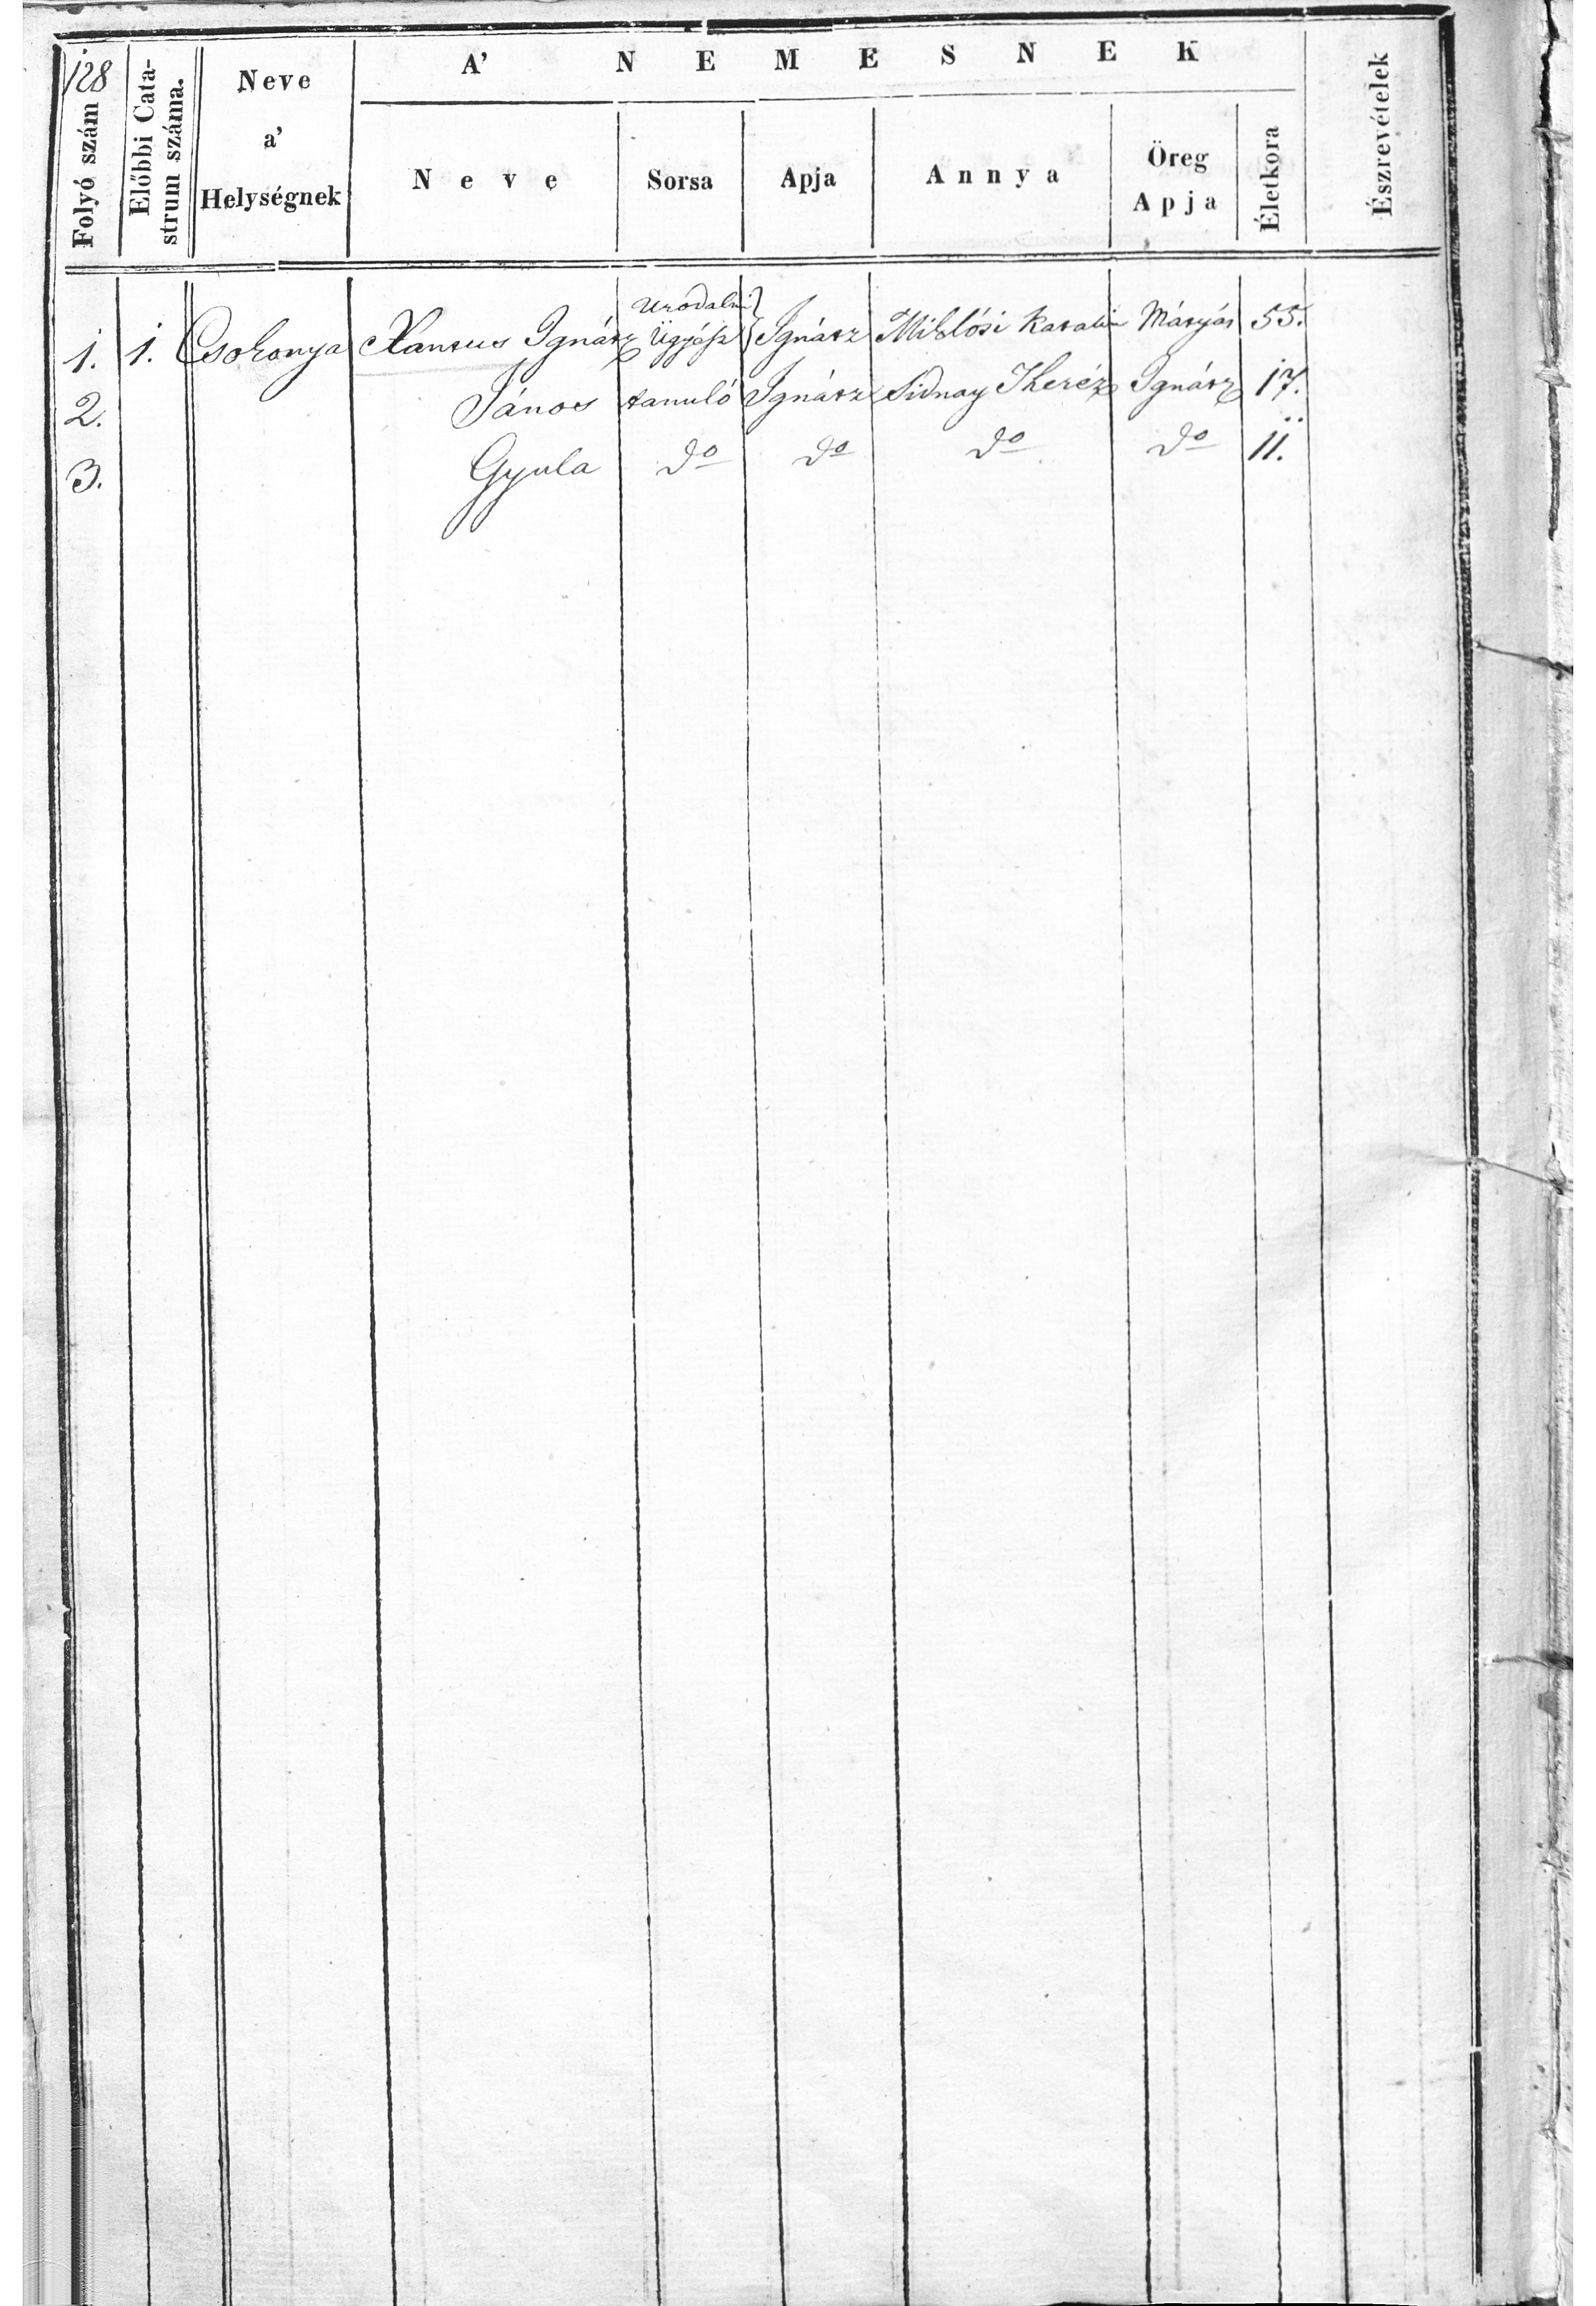 128
A' NEMESNEK
Folyó szám
Előbbi Cata-
strum száma.
Neve
a'
Helységnek
Neve
Sorsa
Apja
Annya
Öreg
Apja
Életkora
Észrevételek
Urodalmi
1. 1. Csokonya Xantus Ignátz Ügyész Ignátz Miklósi Katalin Mátyás 55.
2. János tanuló Ignátz Sidnay Theréz Ignátz 17.
3. Gyula do do do do 11.